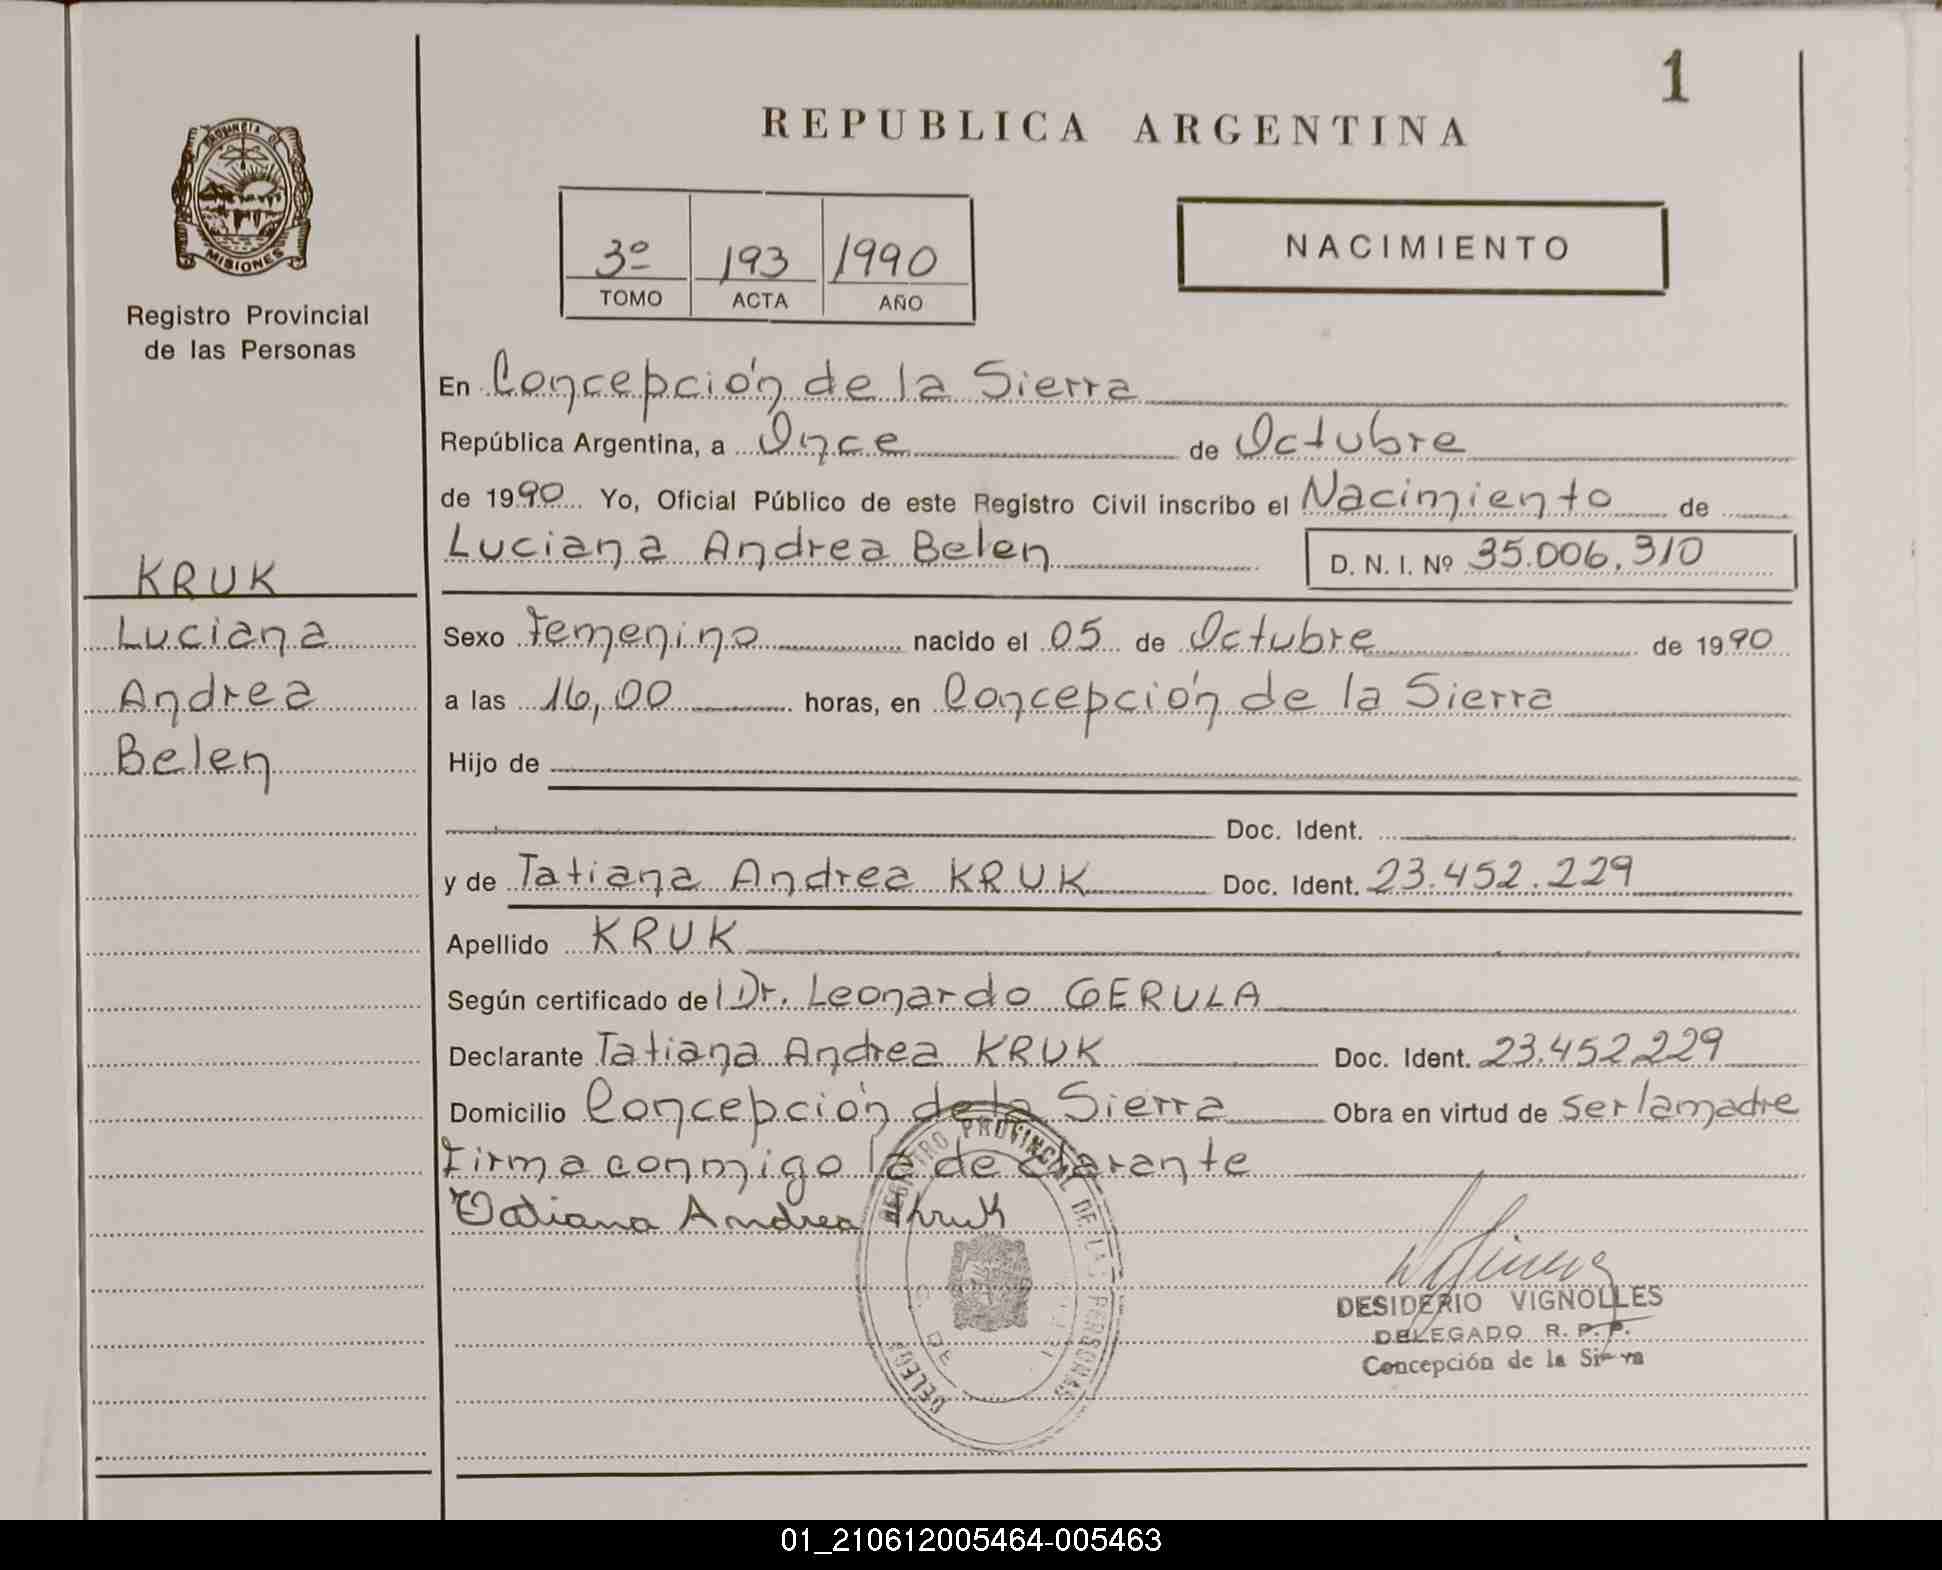 1
REPUBLICA ARGENTINA
PROVINCIA DE
MISIONES
Registro Provincial
de las Personas
3º 193 1990
TOMO ACTA AÑO
NACIMIENTO
En Concepción de la Sierra
República Argentina, a Once de Octubre
de 1990 Yo, Oficial Público de este Registro Civil inscribo el Nacimiento de
Luciana Andrea Belen D. N. I. Nº 35.006.310
KRUK
Luciana
Andrea
Belen
Sexo Femenino nacido el 05 de Octubre de 1990
a las 16,00 horas, en Concepción de la Sierra
Hijo de
Doc. Ident.
y de Tatiana Andrea KRUK Doc. Ident. 23.452.229
Apellido KRUK
Según certificado del Dr. Leonardo GERULA
Declarante Tatiana Andrea KRUK Doc. Ident. 23.452.229
Domicilio Concepción de la Sierra Obra en virtud de ser la madre
Firma conmigo la declarante
Tatiana Andrea Kruk
REGISTRO PROVINCIAL DE LAS PERSONAS
DESIDERIO VIGNOLLES
DELEGADO R. P. P.
Concepción de la Sierra
01_210612005464-005463